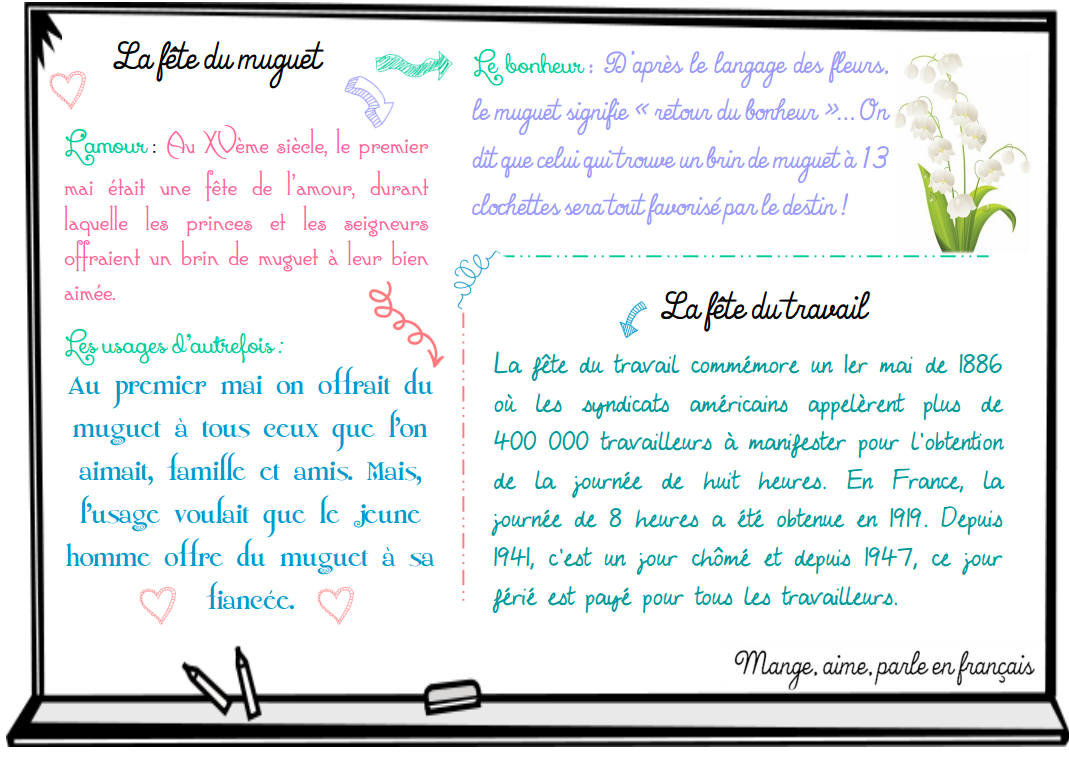 La fête du muguet
L'amour : Au XVème siècle, le premier
mai était une fête de l'amour, durant
laquelle les princes et les seigneurs
offraient un brin de muguet à leur bien
aimée.
Les usages d'autrefois :
Au premier mai on offrait du
muguet à tous ceux que l'on
aimait, famille et amis. Mais,
l'usage voulait que le jeune
homme offre du muguet à sa
fiancée.
Le bonheur : D'après le langage des fleurs,
le muguet signifie « retour du bonheur »... On
dit que celui qui trouve un brin de muguet à 13
clochettes sera tout favorisé par le destin !
La fête du travail
La fête du travail commémore un 1er mai de 1886
où les syndicats américains appelèrent plus de
400 000 travailleurs à manifester pour l'obtention
de la journée de huit heures. En France, la
journée de 8 heures a été obtenue en 1919. Depuis
1941, c'est un jour chômé et depuis 1947, ce jour
férié est payé pour tous les travailleurs.
Mange, aime, parle en français